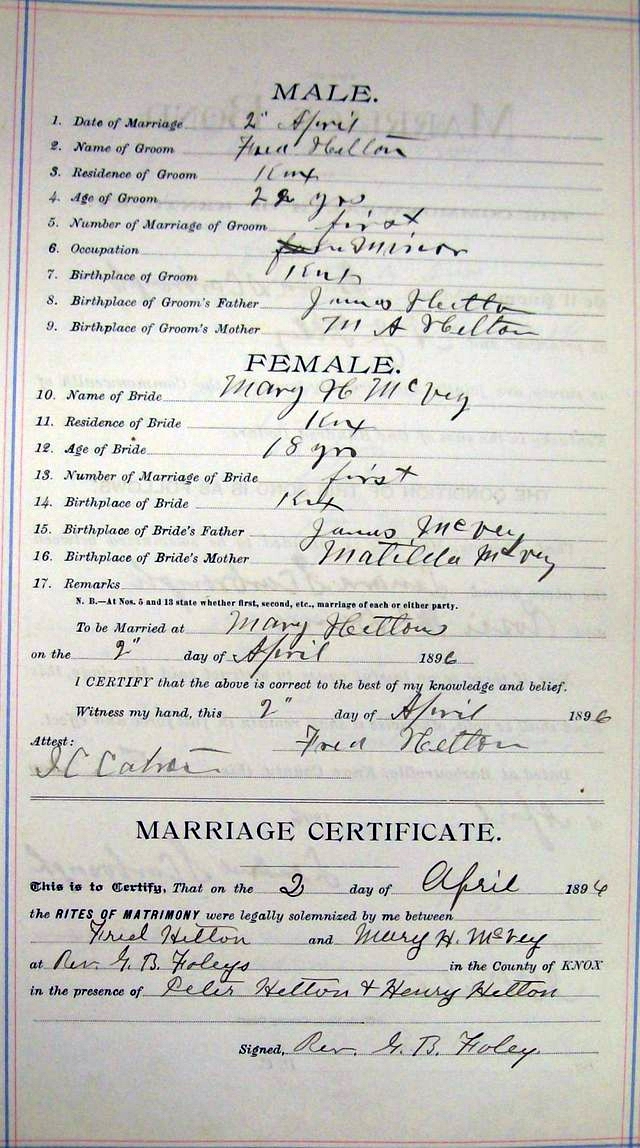 MALE.
1. Date of Marriage 2" April
2. Name of Groom Fred Helton
3. Residence of Groom Knx
4. Age of Groom 22 yrs
5. Number of Marriage of Groom first
6. Occupation Minor
7. Birthplace of Groom Knx
8. Birthplace of Groom's Father James Helton
9. Birthplace of Groom's Mother M A Helton
FEMALE.
10. Name of Bride Mary H McVey
11. Residence of Bride Knx
12. Age of Bride 18 yrs
13. Number of Marriage of Bride first
14. Birthplace of Bride Knx
15. Birthplace of Bride's Father James McVey
16. Birthplace of Bride's Mother Matilda McVey
17. Remarks
N. B.—At Nos. 5 and 13 state whether first, second, etc., marriage of each or either party.
To be Married at Mary Heltons
on the 2" day of April 1896
I CERTIFY that the above is correct to the best of my knowledge and belief.
Witness my hand, this 2" day of April 1896
Attest: Fred Helton
This is to Certify, That on the 2 day of April 1896
MARRIAGE CERTIFICATE.
the RITES OF MATRIMONY were legally solemnized by me between
Fred Helton and Mary H. McVey
at Rev. G. B. Foleys in the County of KNOX
in the presence of Peter Helton & Henry Helton
Signed, Rev. G. B. Foley